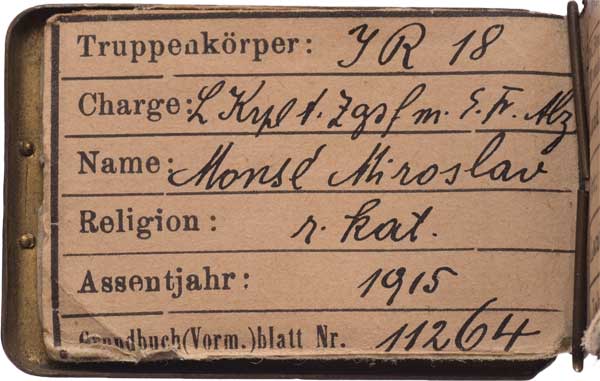 Truppenkörper: JR 18
Charge: L Krpl t. Zgsf m. E. Fr. Abz
Name: Monsé Miroslav
Religion: r. kat.
Assentjahr: 1915
Grundbuch(Vorm.)blatt Nr. 11264